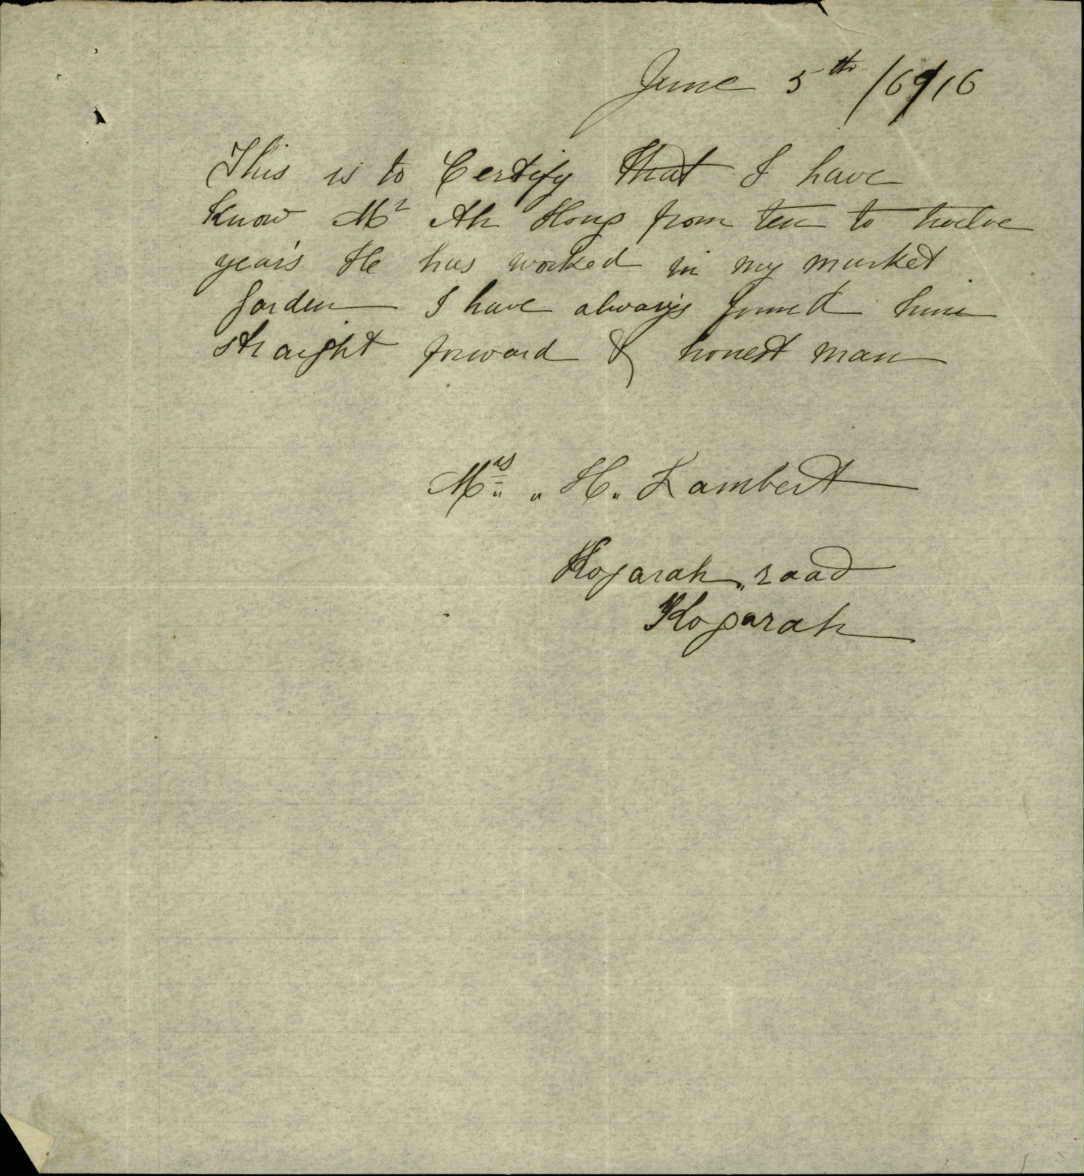 June 5th /6/16
This is to Certify that I have
Know Mr Ah Hong from ten to twelve
year's He has worked in my market
garden I have always found him
straight forward & honest man
Mrs. H. Lambert
Kogarah road
Kogarah